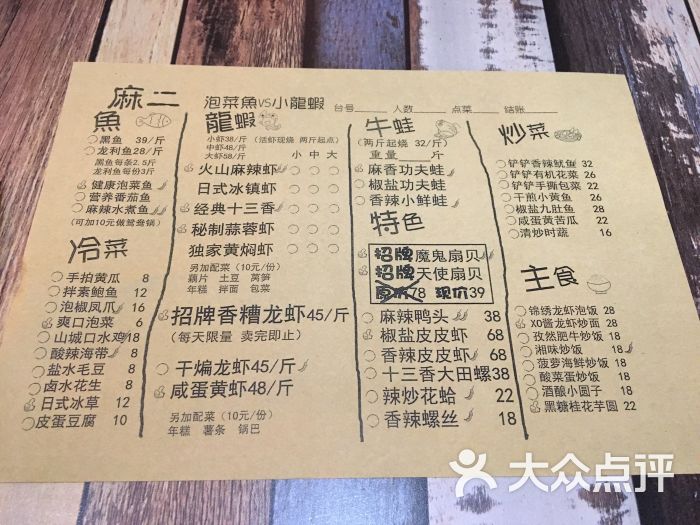 麻二 泡菜魚VS小龍蝦 台号 人数 点菜 结账
魚
黑鱼 39/斤
龙利鱼28/斤
黑鱼每条2.5斤
龙利鱼每份3斤
健康泡菜鱼
营养番茄鱼
麻辣水煮鱼
(可加10元做鸳鸯锅)
冷菜
手拍黄瓜 8
拌素鲍鱼 12
泡椒凤爪 16
爽口泡菜 6
山城口水鸡18
酸辣海带 8
盐水毛豆 8
卤水花生 8
日式冰草 12
皮蛋豆腐 10
龍蝦
小虾38/斤 (活虾现烧 两斤起点)
中虾48/斤
大虾58/斤 小 中 大
火山麻辣虾
日式冰镇虾
经典十三香
秘制蒜蓉虾
独家黄焖虾
另加配菜(10元/份)
藕片 土豆 莴笋
年糕 拌面 包菜
招牌香糟龙虾45/斤
(每天限量 卖完即止)
干煸龙虾45/斤
咸蛋黄虾48/斤
另加配菜 (10元/份)
年糕 薯条 锅巴
牛蛙
(两斤起烧 32/斤)
重量 斤
麻香功夫蛙
椒盐功夫蛙
香辣小鲜蛙
特色
招牌魔鬼扇贝
招牌天使扇贝
原价78 现价39
麻辣鸭头 38
椒盐皮皮虾 68
香辣皮皮虾 68
十三香大田螺38
辣炒花蛤 22
香辣螺丝 18
炒菜
铲铲香辣鱿鱼 32
铲铲有机花菜 26
铲铲手撕包菜 22
干煎小黄鱼 28
椒盐九肚鱼 28
咸蛋黄苦瓜 22
清炒时蔬 16
主食
锦绣龙虾泡饭 28
XO酱龙虾炒面 28
孜然肥牛炒饭 18
湘味炒饭 18
菠萝海鲜炒饭 18
酸菜蛋炒饭 18
酒酿小圆子 18
黑糖桂花芋圆 22
大众点评